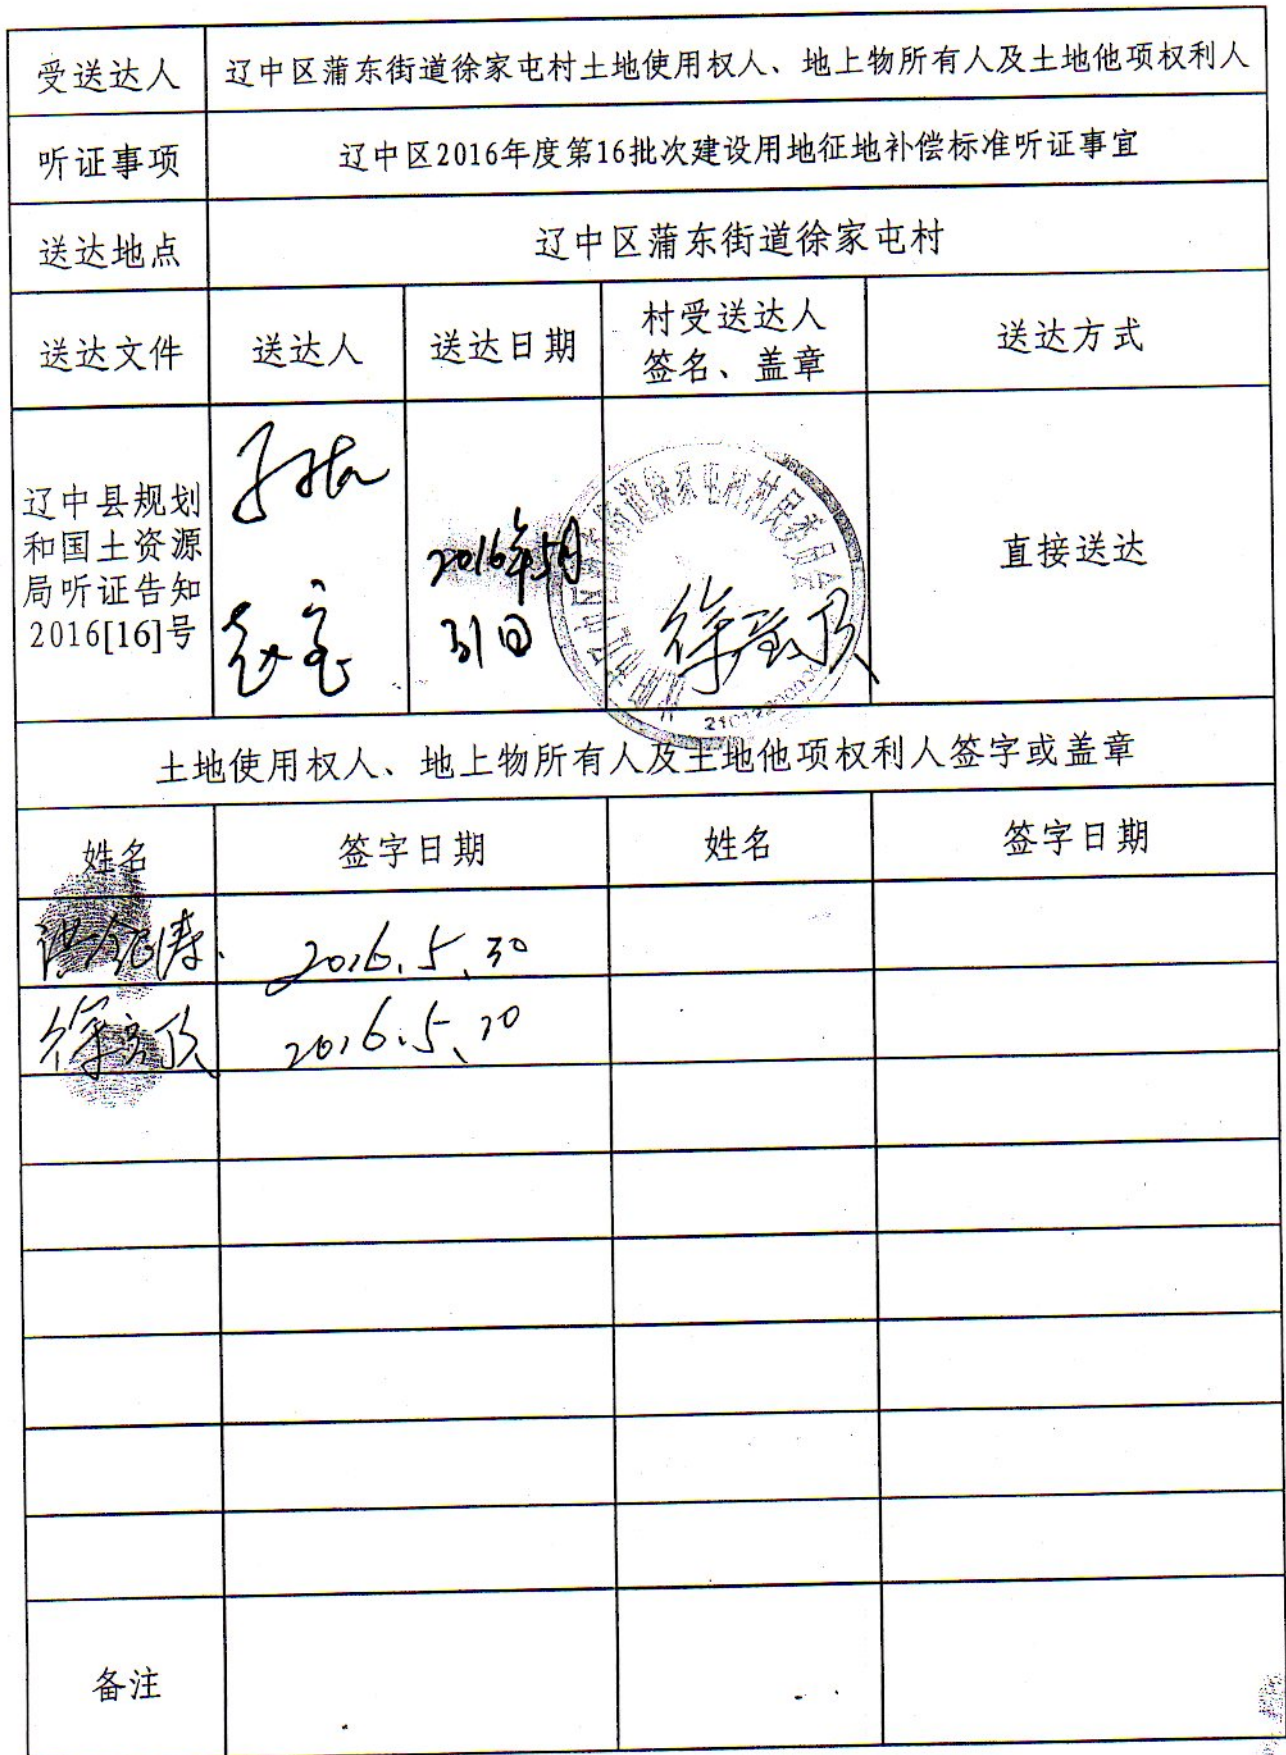 受送达人 辽中区蒲东街道徐家屯村土地使用权人、地上物所有人及土地他项权利人
听证事项 辽中区2016年度第16批次建设用地征地补偿标准听证事宜
送达地点 辽中区蒲东街道徐家屯村
送达文件 送达人 送达日期 村受送达人 送达方式
签名、盖章
辽中县规划
和国土资源
局听证告知
2016[16]号
2016年5月
31日
直接送达
土地使用权人、地上物所有人及土地他项权利人签字或盖章
姓名 签字日期 姓名 签字日期
2016.5.30
2016.5.30
备注